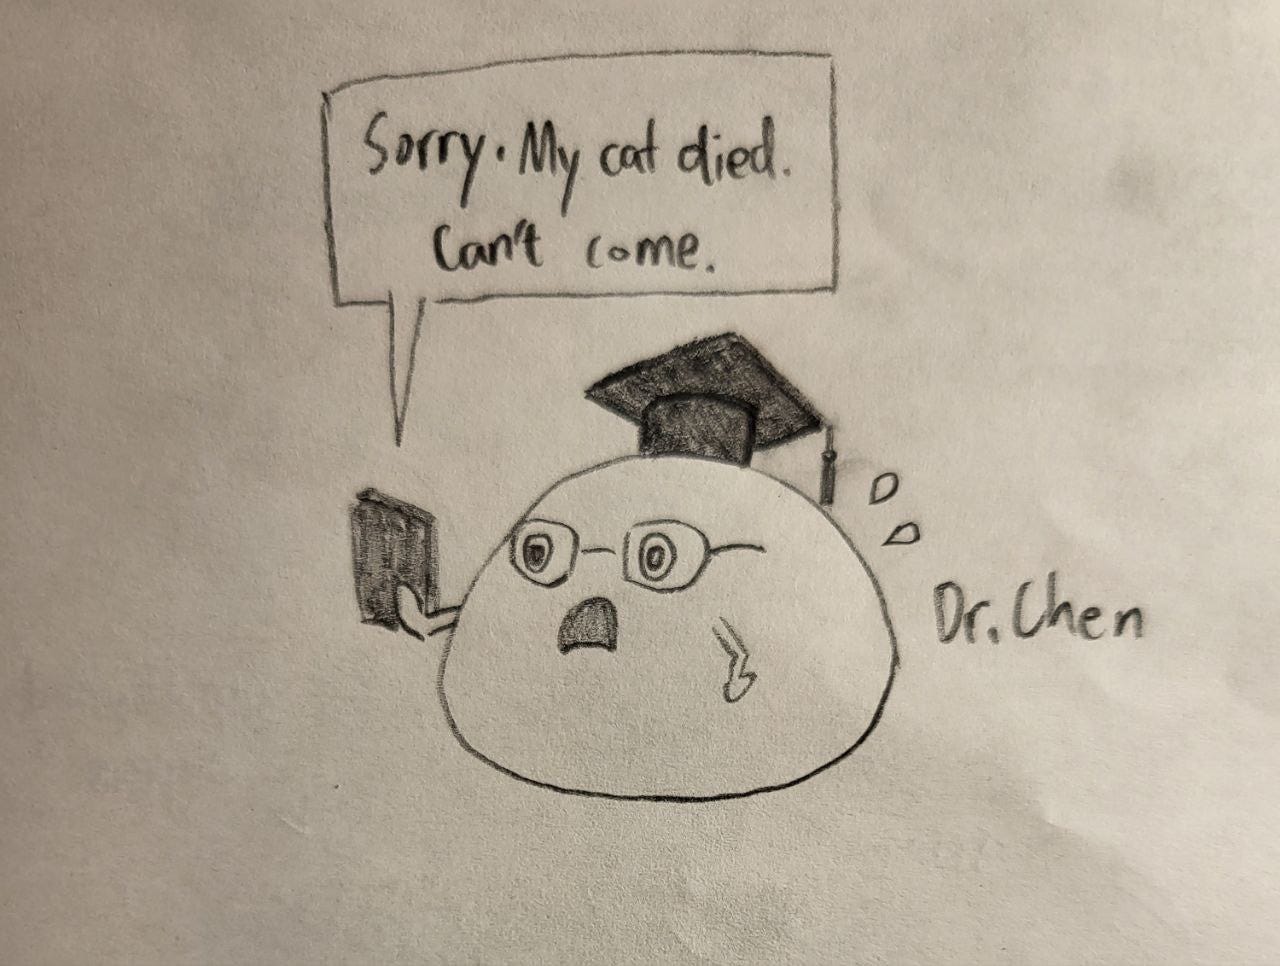 Sorry. My cat died.
Can't come.
Dr. Chen